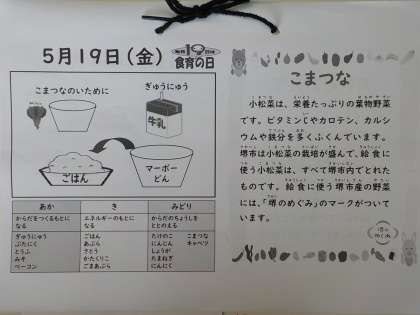 5月19日(金)
毎月19日は
食育の日
こまつなのいために
ぎゅうにゅう
牛乳
ごはん
マーボー
どん
あか
き
みどり
からだをつくるもとに
なる
エネルギーのもとに
なる
からだのちょうしを
ととのえる
ぎゅうにゅう
ぶたにく
とうふ
みそ
ベーコン
ごはん
あぶら
さとう
かたくりこ
ごまあぶら
たけのこ
にんじん
しょうが
たまねぎ
にんにく
こまつな
キャベツ
こまつな
小松菜は、栄養たっぷりの葉物野菜
です。ビタミンCやカロテン、カルシ
ウムや鉄分を多くふくんでいます。
堺市は小松菜の栽培が盛んで、給食に
使う小松菜は、すべて堺市内でとれた
ものです。給食に使う堺市産の野菜
には、「堺のめぐみ」のマークがついて
います。